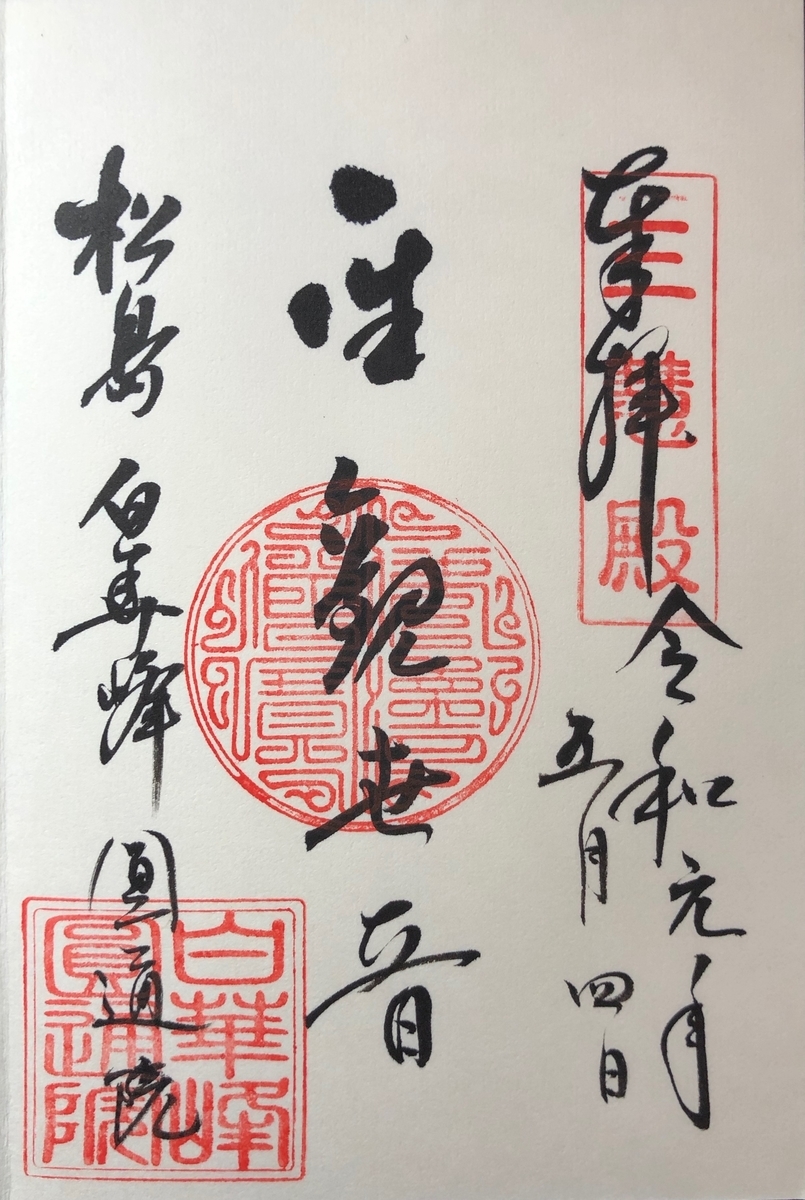 奉拝
三慧殿
令和元年
五月四日
聖観世音
松島 白華峰 圓通院
白華峰
圓通院